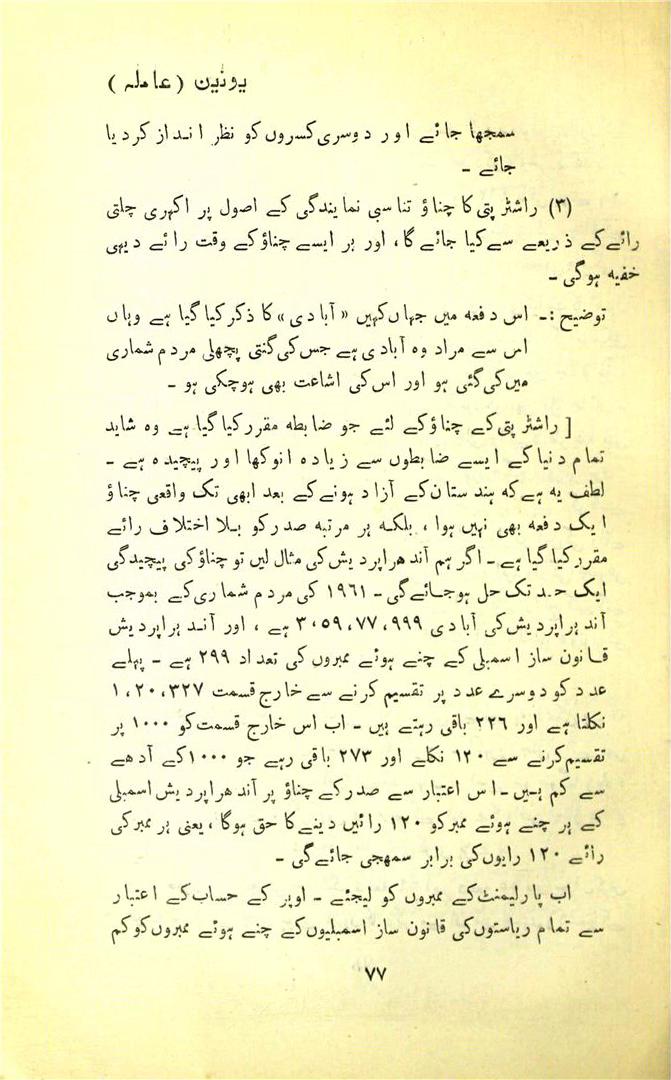 یونین (عاملہ)
سمجھا جائے اور دوسری کسروں کو نظر انداز کردیا
جائے ۔
(۳) راشٹرپتی کا چناؤ تناسبی نمایندگی کے اصول پر اکہری چلتی
رائے کے ذریعے سے کیا جائے گا، اور ہر ایسے چناؤ کے وقت رائے دیہی
خفیہ ہوگی ۔
توضیح :۔ اس دفعہ میں جہاں کہیں «آبادی» کا ذکر کیا گیا ہے وہاں
اس سے مراد وہ آبادی ہے جس کی گنتی پچھلی مردم شماری
میں کی گئی ہو اور اس کی اشاعت بھی ہوچکی ہو ۔
[ راشٹرپتی کے چناؤ کے لئے جو ضابطہ مقرر کیا گیا ہے وہ شاید
تمام دنیا کے ایسے ضابطوں سے زیادہ انوکھا اور پیچیدہ ہے ۔
لطف یہ ہے کہ ہندستان کے آزاد ہونے کے بعد ابھی تک واقعی چناؤ
ایک دفعہ بھی نہیں ہوا ، بلکہ ہر مرتبہ صدر کو بلا اختلاف رائے
مقرر کیا گیا ہے ۔ اگر ہم آندھراپردیش کی مثال لیں تو چناؤ کی پیچیدگی
ایک حد تک حل ہوجائے گی ۔ ۱۹٦۱ کی مردم شماری کے بموجب
آندہراپردیش کی آبادی ۳،۰۵۹،۷۷،۹۹۹ ہے ، اور آندہراپردیش
قانون ساز اسمبلی کے چنے ہوئے ممبروں کی تعداد ۲۹۹ ہے ۔ پہلے
عدد کو دوسرے عدد پر تقسیم کرنے سے خارج قسمت ۱،۲۰،۳۲۷
نکلتا ہے اور ۲۲٦ باقی رہتے ہیں ۔ اب اس خارج قسمت کو ۱۰۰۰ پر
تقسیم کرنے سے ۱۲۰ نکلے اور ۲۷۳ باقی رہے جو ۱۰۰۰ کے آدھے
سے کم ہیں ۔ اس اعتبار سے صدر کے چناؤ پر آندھراپردیش اسمبلی
کے ہر چنے ہوئے ممبر کو ۱۲۰ رائیں دینے کا حق ہوگا ، یعنی ہر ممبر کی
رائے ۱۲۰ رایوں کی برابر سمھجی جائے گی ۔
اب پارلیمنٹ کے ممبروں کو لیجئے ۔ اوپر کے حساب کے اعتبار
سے تمام ریاستوں کی قانون ساز اسمبلیوں کے چنے ہوئے ممبروں کو کم
۷۷